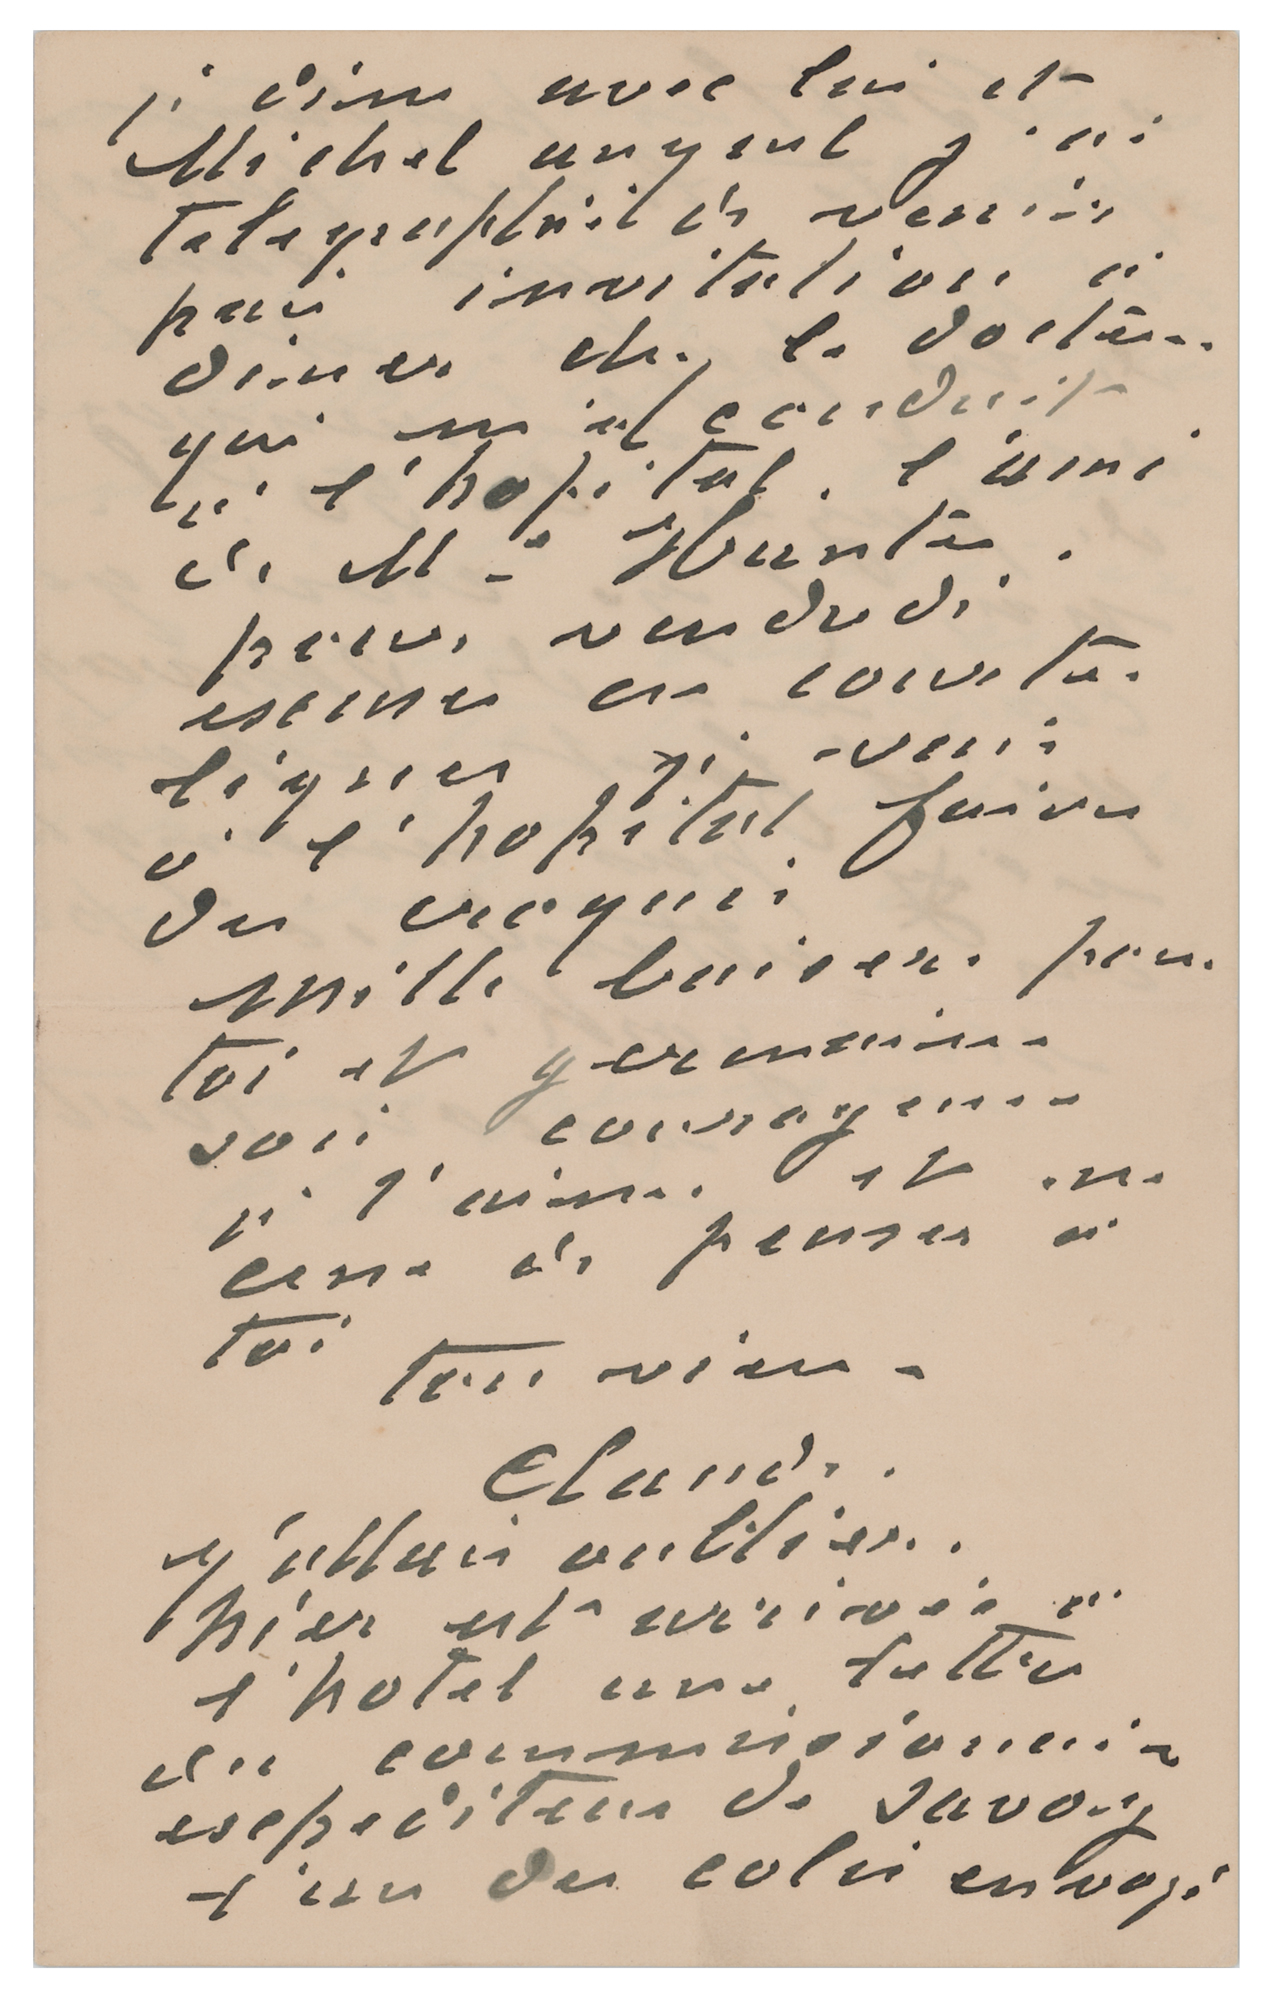 je dine avec lui et
Michel auquel j'ai
telegraphié de venir
pour invitation à
diner chez le docteur
qui m'a conduit
à l'hopital, l'ami
de Me Hunter.
pour vendredi
excuse ces courtes
lignes j'ai venir
à l'hopital faire
des croquis
Mille baisers pour
toi et germaine
sois courageuse
je t'aime et ne
cesse de penser à
toi
ton vieux
Claude.
J'allais oublier.
hier est arrivée à
l'hotel une lettre
du commissionnaire
expediteur de Savoy
l'un des colis envoyé